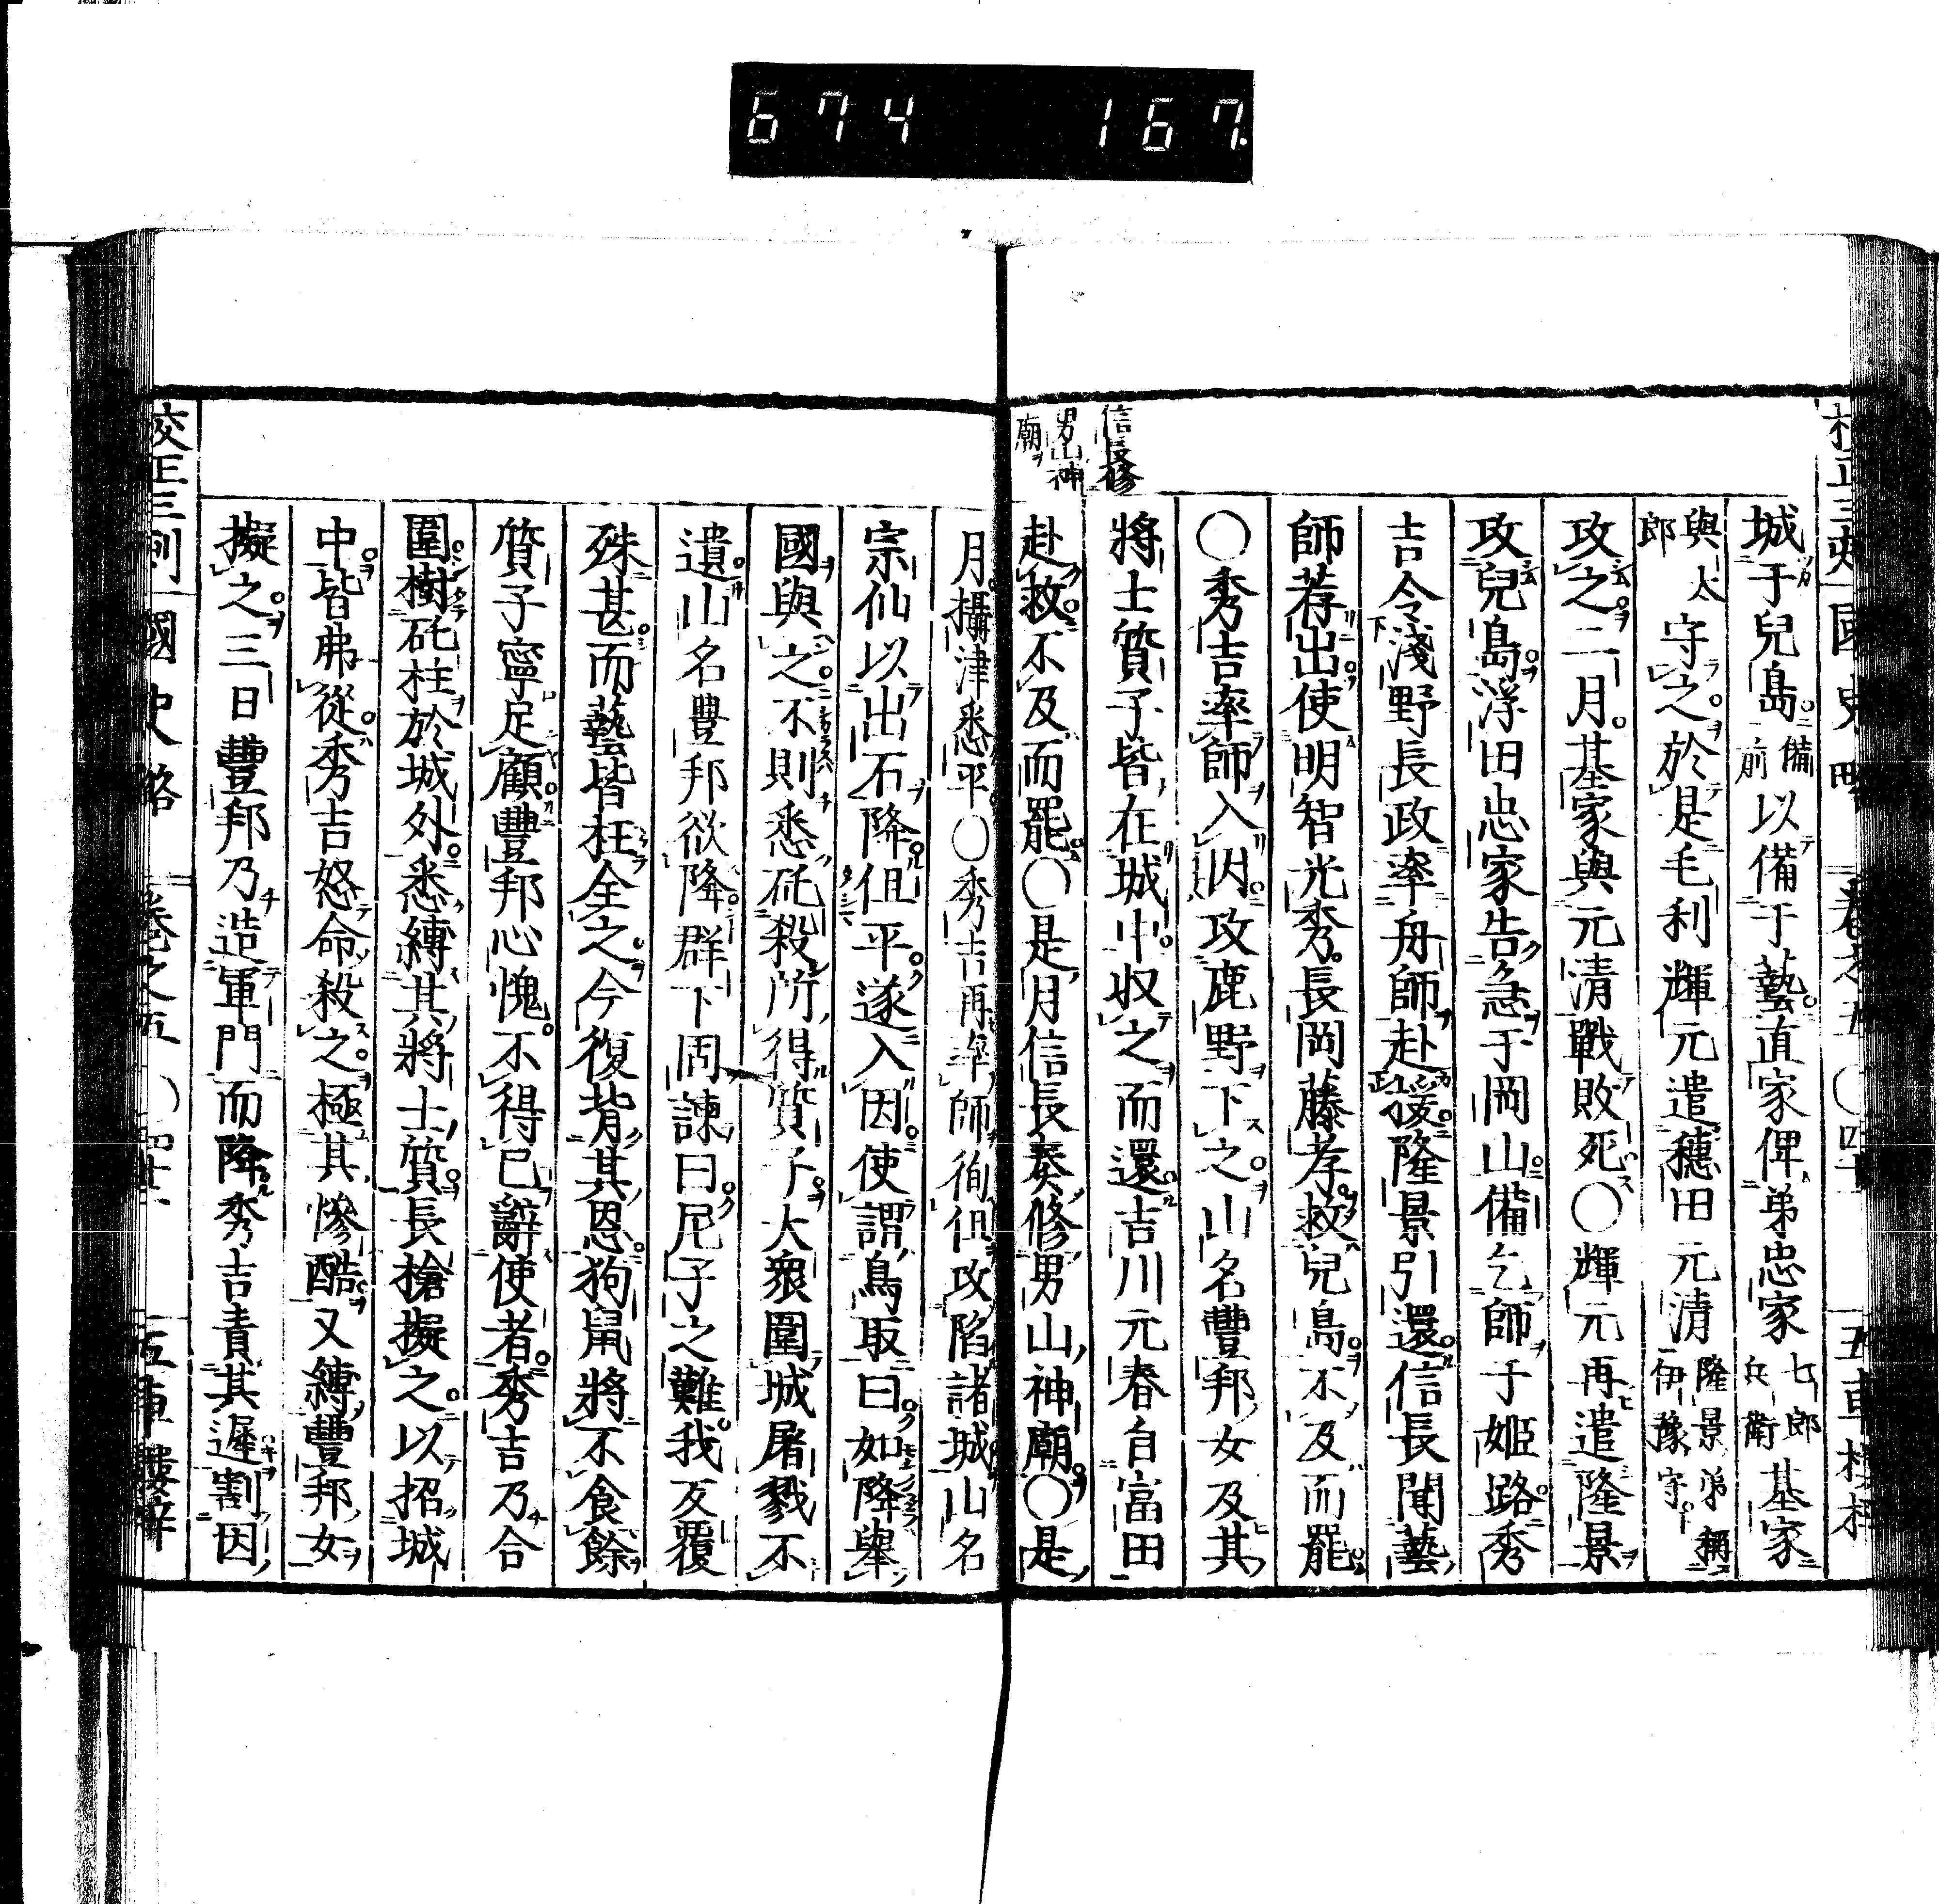 674 167
信長修
男山神
廟ヲ
城于兒島備前以備于藝直家俾弟忠家七郎兵衛基家
與太郎守之於是毛利輝元遣穗田元清隆景弟稱伊豫守
攻之二月基家與元清戰敗死○輝元再遣隆景
攻兒島浮田忠家告急于岡山備乞師于姬路秀
吉令淺野長政率舟師赴援隆景引還信長聞藝
師荐出使明智光秀長岡藤孝救兒島不及而罷
○秀吉率師入因攻鹿野下之山名豐邦女及其
將士質子皆在城中收之而還吉川元春自富田
赴救不及而罷○是月信長奏修男山神廟○是
月攝津悉平○秀吉再率師徇伹攻陷諸城山名
宗仙以出石降伹平遂入因使謂鳥取曰如降舉
國與之不則悉矺殺所得質子大衆圍城屠戮不
遺山名豐邦欲降群下固諫曰尼子之難我反覆
殊甚而藝皆枉全之今復背其恩狗鼠將不食餘
質子寧足顧豐邦心愧不得已辭使者秀吉乃合
圍樹矺柱於城外悉縛其將士質長槍擬之以招城
中皆弗從秀吉怒命殺之極其慘酷又縛豐邦女
擬之三日豐邦乃造軍門而降秀吉責其遲割因
校正三刻 國史略 卷之五 ○四十一 五車樓梓